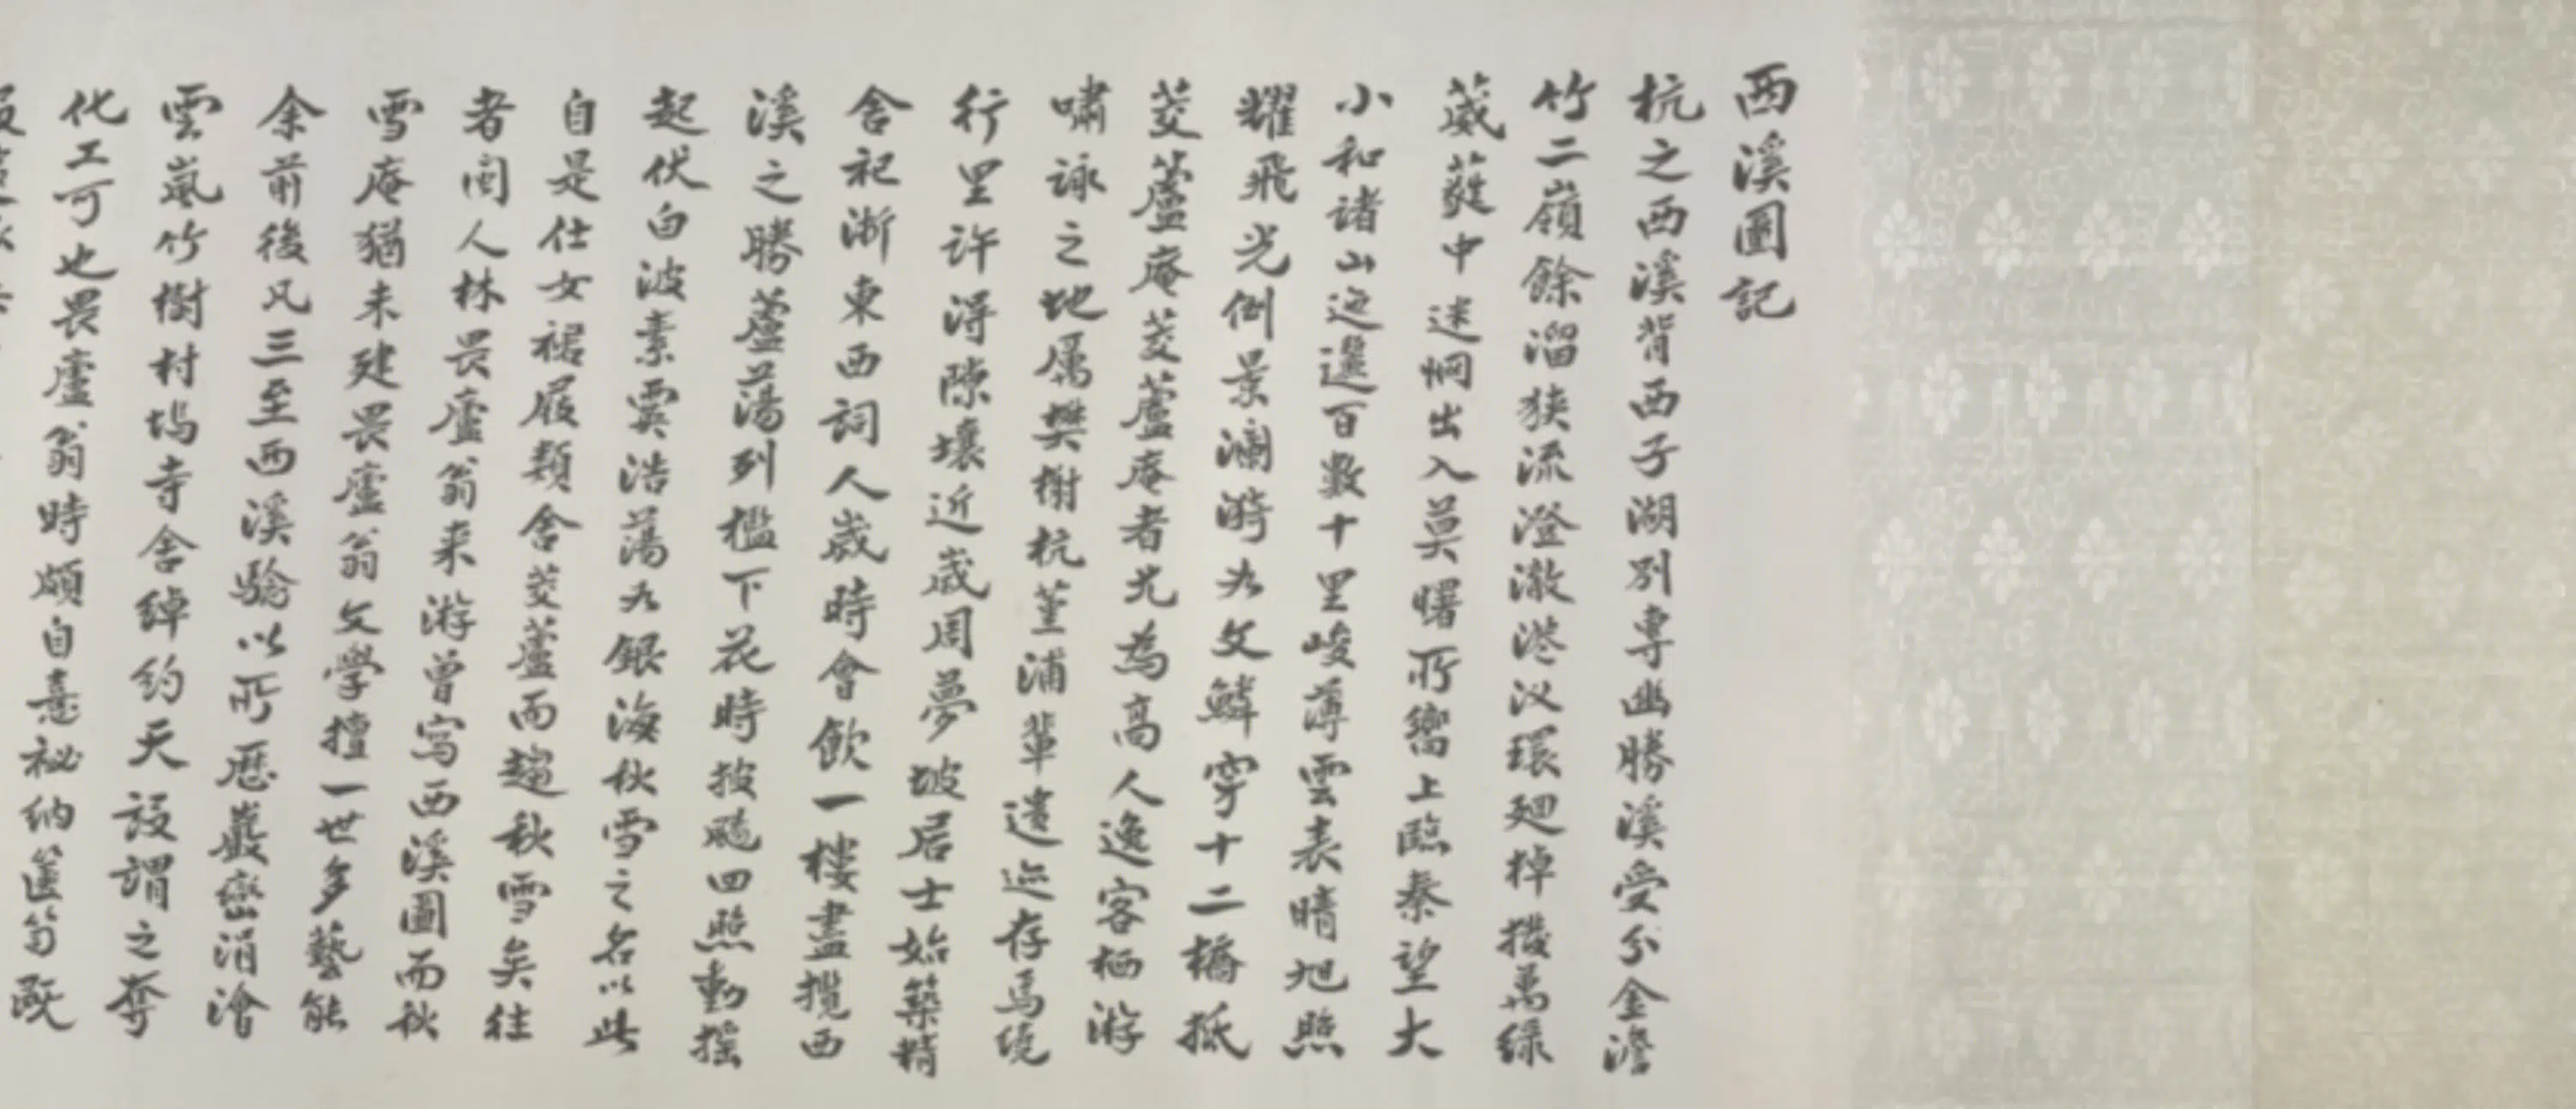 西溪圖記
杭之西溪背西子湖別專幽勝溪受分金澮
竹二嶺餘溜狹流澄澈港汊環廻棹撥萬綠
葳蕤中迷惘出入莫曙所嚮上臨秦望大
小和諸山迤邐百數十里峻薄雲表晴旭照
耀飛光倒景瀾漪為文鱗穿十二橋抵
茭蘆庵茭蘆庵者尤為高人逸客栖游
嘯詠之地厲樊榭杭堇浦輩遺迹存焉繞
行里許得隙壤近歲周夢坡居士始築精
舍祀淛東西詞人歲時會飲一樓盡攬西
溪之勝蘆蕩列檻下花時披颸四照動搖
起伏白波素雲浩蕩為銀海秋雪之名以此
自是仕女裙屐類舍茭蘆而趨秋雪矣往
者閩人林畏廬翁來游曾寫西溪圖而秋
雪庵猶未建畏廬翁文學擅一世多藝能
余前後凡三至西溪驗以所歷巖巒涓澮
雲嵐竹樹村塢寺舍綽約天設謂之奪
化工可也畏廬翁時頗自憙祕納篋笥既